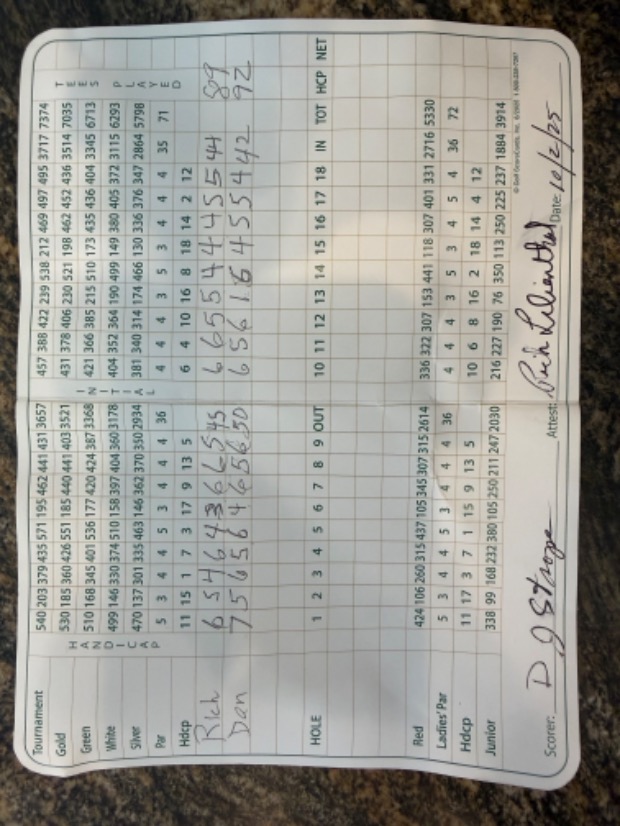 Tournament 540 203 379 435 571 195 462 441 431 3657 457 388 422 239 538 212 469 497 495 3717 7374
Gold 530 185 360 426 551 185 440 441 403 3521 431 378 406 230 521 198 462 452 436 3514 7035
Green HANDICAP 510 168 345 401 536 177 420 424 387 3368 INITIAL 421 366 385 215 510 173 435 436 404 3345 6713 TEES PLAYED
White 499 146 330 374 510 158 397 404 360 3178 404 352 364 190 499 149 380 405 372 3115 6293
Silver 470 137 301 335 463 146 362 370 350 2934 381 340 314 174 466 130 336 376 347 2864 5798
Par 5 3 4 4 5 3 4 4 4 36 4 4 4 3 5 3 4 4 4 35 71
Hdcp 11 15 1 7 3 17 9 13 5 6 4 10 16 8 18 14 2 12
Rich 6 5 4 6 4 3 6 6 5 45 6 6 5 5 4 4 4 5 5 44 89
Dan 7 5 6 5 6 4 6 5 6 50 6 5 6 1 6 4 5 5 4 42 92
HOLE 1 2 3 4 5 6 7 8 9 OUT 10 11 12 13 14 15 16 17 18 IN TOT HCP NET
Red 424 106 260 315 437 105 345 307 315 2614 336 322 307 153 441 118 307 401 331 2716 5330
Ladies' Par 5 3 4 4 5 3 4 4 4 36 4 4 4 3 5 3 4 5 4 36 72
Hdcp 11 17 3 7 1 15 9 13 5 10 6 8 16 2 18 14 4 12
Junior 338 99 168 232 380 105 250 211 247 2030 216 227 190 76 350 113 250 225 237 1884 3914
Scorer: D J Strope Attest: Rich Lilienthal Date: 10/2/25